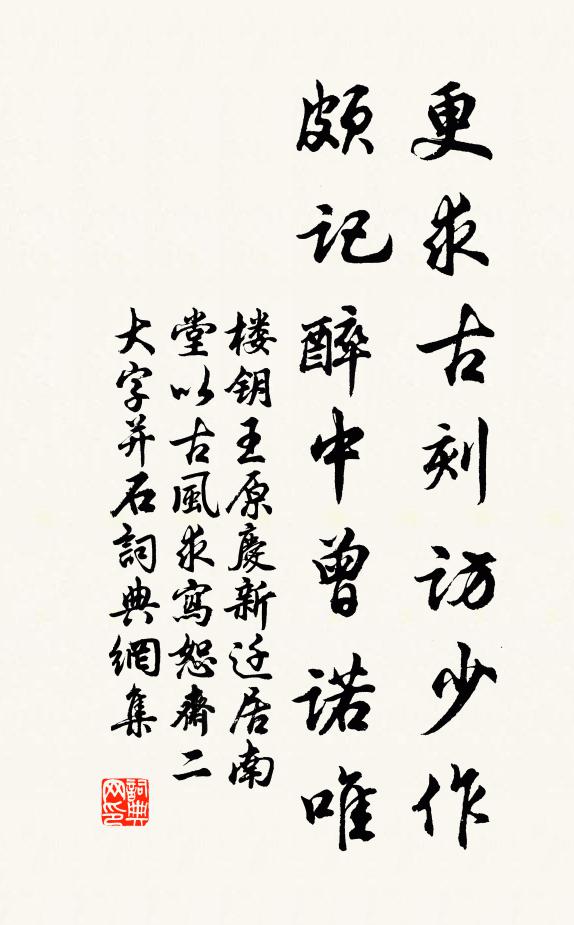 更求古刻访少作
颇记醉中曾诺唯
楼钥王原慶新迁居南
堂以古風求寫恕齋二
大字并石詞典網集
詞典网印